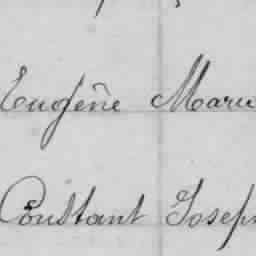 Eugène Marie
Constant Joseph